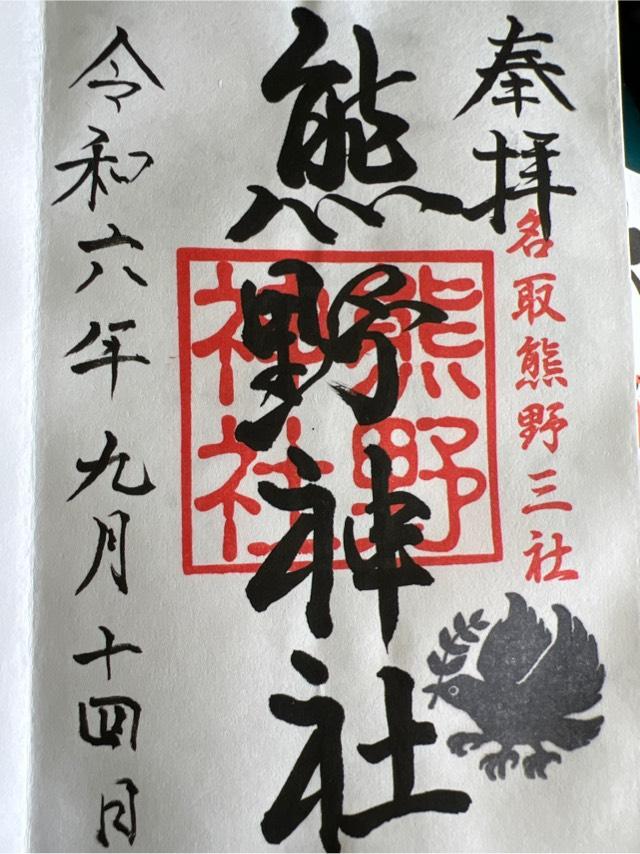 奉拝
名取熊野三社
熊野神社
熊野
神社
令和六年九月十四日